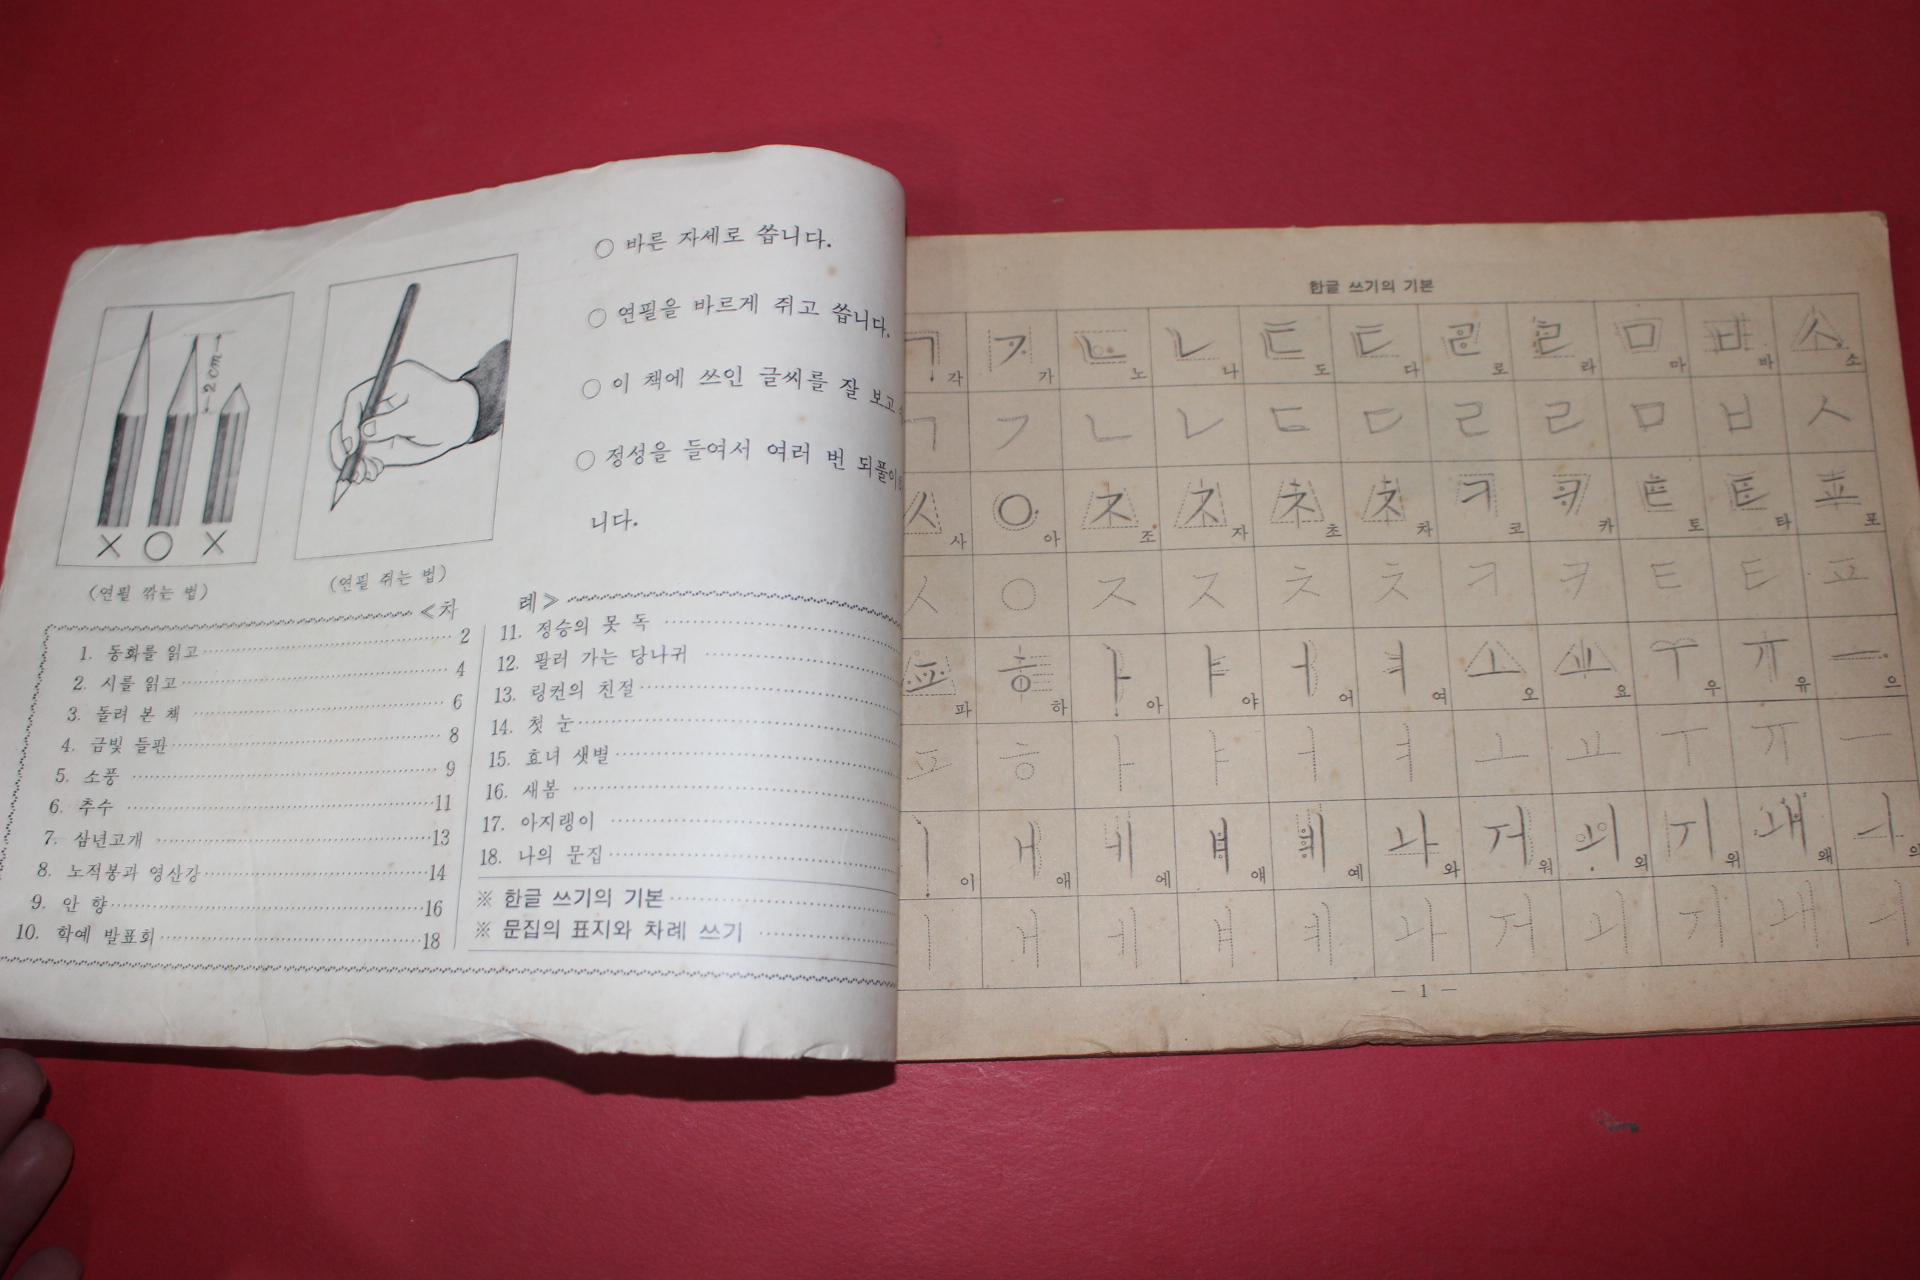 ○ 바른 자세로 씁니다.
○ 연필을 바르게 쥐고 씁니다.
○ 이 책에 쓰인 글씨를 잘 보고
○ 정성을 들여서 여러 번 되풀이
니다.
2cm
× ○ ×
(연필 깎는 법)
(연필 쥐는 법)
≪차 례≫
1. 동화를 읽고 2
2. 시를 읽고 4
3. 돌려 본 책 6
4. 금빛 들판 8
5. 소풍 9
6. 추수 11
7. 삼년고개 13
8. 노적봉과 영산강 14
9. 안 향 16
10. 학예 발표회 18
11. 정승의 못 독
12. 팔러 가는 당나귀
13. 링컨의 친절
14. 첫 눈
15. 효녀 샛별
16. 새봄
17. 아지랭이
18. 나의 문집
※ 한글 쓰기의 기본
※ 문집의 표지와 차례 쓰기
한글 쓰기의 기본
ㄱ ㄱ ㄴ ㄴ ㄷ ㄷ ㄹ ㄹ ㅁ ㅂ ㅅ
각 가 노 나 도 다 로 라 마 바 소
ㄱ ㄱ ㄴ ㄴ ㄷ ㄷ ㄹ ㄹ ㅁ ㅂ ㅅ
ㅅ ㅇ ㅈ ㅈ ㅊ ㅊ ㅋ ㅋ ㅌ ㅌ ㅍ
사 아 조 자 초 차 코 카 토 타 포
ㅅ ㅇ ㅈ ㅈ ㅊ ㅊ ㅋ ㅋ ㅌ ㅌ ㅍ
ㅍ ㅎ ㅏ ㅑ ㅓ ㅕ ㅗ ㅛ ㅜ ㅠ ㅡ
파 하 아 야 어 여 오 요 우 유 으
ㅍ ㅎ ㅏ ㅑ ㅓ ㅕ ㅗ ㅛ ㅜ ㅠ ㅡ
ㅣ ㅐ ㅔ ㅒ ㅖ ㅘ ㅝ ㅚ ㅟ ㅙ ㅢ
이 애 에 얘 예 와 워 외 위 왜 의
ㅣ ㅐ ㅔ ㅒ ㅖ ㅘ ㅝ ㅚ ㅟ ㅙ ㅢ
― 1 ―